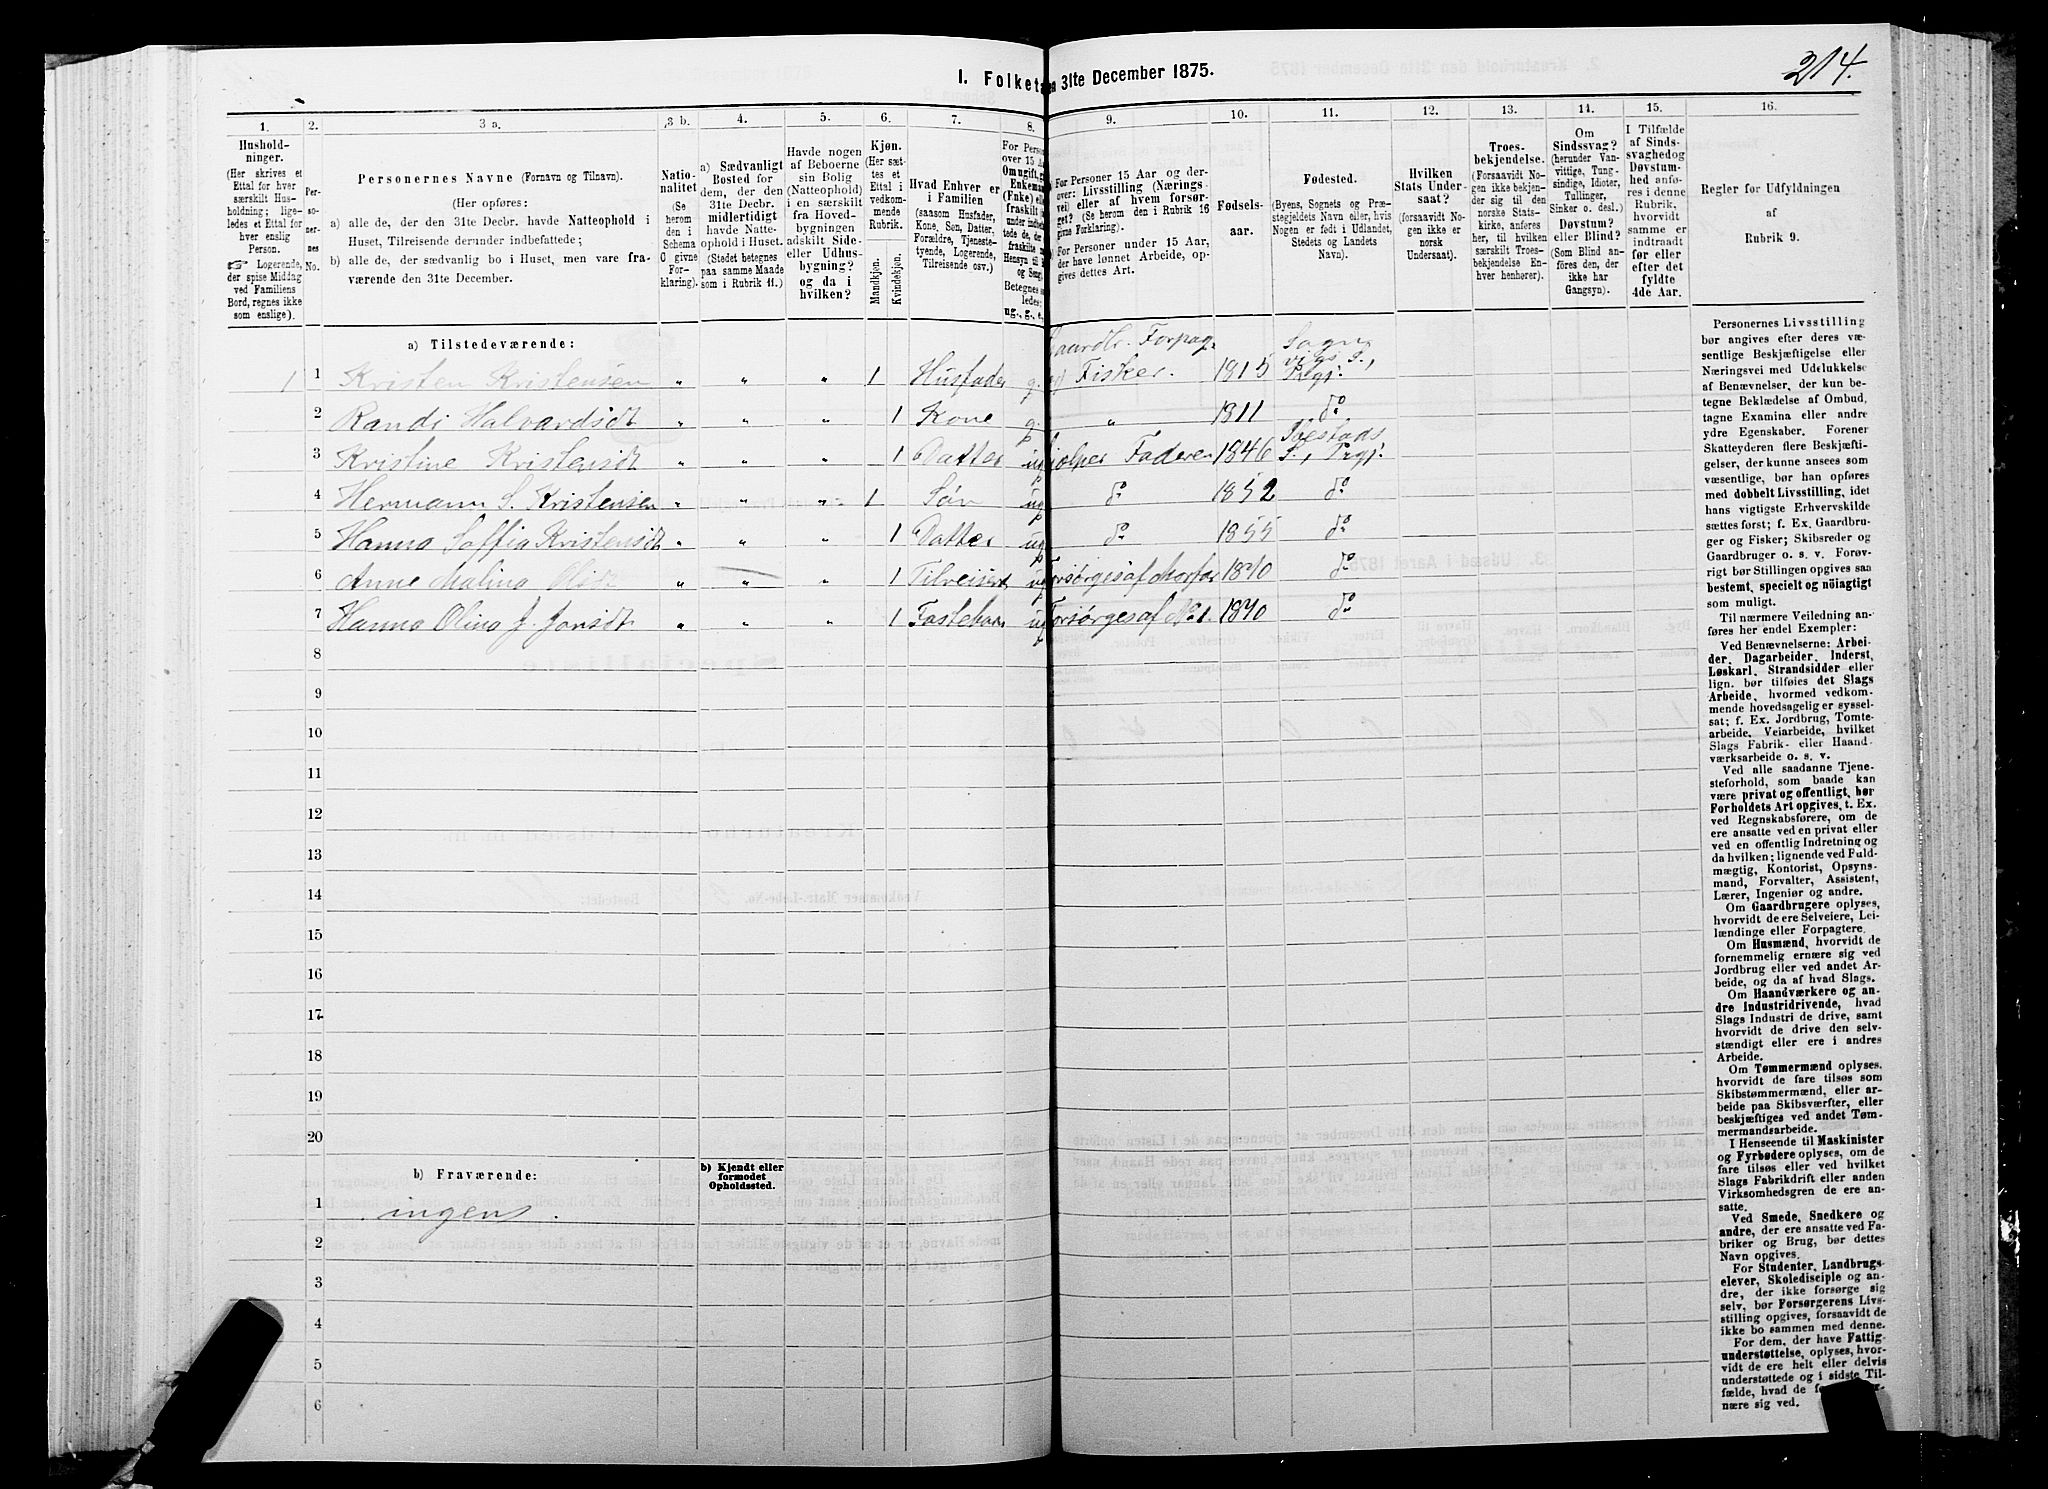 214.
I. Folketa
n 31te December 1875.
1.
2.
3 a.
3 b.
4.
5.
6.
7.
8.
9.
10.
11.
12.
13.
14.
15.
16.
Hushold-
ninger.
(Her skrives et
Ettal for hver
særskilt Hus-
holdning; lige-
ledes et Ettal for
hver enslig
Person.
☞ Logerende,
der spise Middag
ved Familiens
Bord, regnes ikke
som enslige).
Per-
so-
ner-
nes
No.
Personernes Navne (Fornavn og Tilnavn).
(Her opføres:
a) alle de, der den 31te Decbr. havde Natteophold i
Huset, Tilreisende derunder indbefattede;
b) alle de, der sædvanlig bo i Huset, men vare fra-
værende den 31te December.
Natio-
nalitet
(Se
herom
den i
Schema
C givne
For-
klaring).
a) Sædvanligt
Bosted for
dem, der den
31te Decbr.
midlertidigt
havde Natte-
ophold i Huset.
(Stedet betegnes
paa samme Maade
som i Rubrik 11.)
Havde nogen
af Beboerne
sin Bolig
(Natteophold)
i en særskilt
fra Hoved-
bygningen
adskilt Side-
eller Udhus-
bygning?
og da i
hvilken?
Kjøn.
(Her sæt-
tes et
Ettal i
vedkom-
mende
Rubrik.
Mandkjøn.
Kvindekjøn.
Hvad Enhver er
i Familien
(saasom Husfader,
Kone, Søn, Datter,
Forældre, Tjeneste-
tyende, Logerende,
Tilreisende osv.)
For Person
over 15 Aar
Om ugift, g
Enkeman
(Enke) elle
fraskilt
Betegnes sa
ledes:
ug., g., e.,
For Personer 15 Aar og der-
over: Livsstilling (Nærings
vei) eller af hvem forsør-
get? (Se herom den i Rubrik 16
givne Forklaring).
For Personer under 15 Aar,
der have lønnet Arbeide, op-
gives dettes Art.
Fødsels-
aar.
Fødested.
(Byens, Sognets og Præ-
stegjeldets Navn eller, hvis
Nogen er født i Udlandet,
Stedets og Landets
Navn).
Hvilken
Stats Under-
saat?
(forsaavidt No-
gen ikke er
norsk
Undersaat).
Troes-
bekjendelse.
(Forsaavidt No-
gen ikke bekjen-
der sig til den
norske Stats-
kirke, anføres
her, til hvilken
særskilt Troes-
bekjendelse En-
hver henhører).
Om
Sindssvag?
(herunder Van-
vittige, Tung-
sindige, Idioter,
Tullinger,
Sinker o. desl.)
Døvstum?
eller Blind?
(Som Blind an-
føres den, der
ikke har
Gangsyn).
I Tilfælde
af Sinds-
svaghed og
Døvstum-
hed anfø-
res i denne
Rubrik,
hvorvidt
samme er
indtraadt
før eller
efter det
fyldte
4de Aar.
Regler for Udfyldningen
af
Rubrik 9.
a) Tilstedeværende:
Gaardbr. Forpag.
Sogn
vigs S.,
1 1 Kristen Kristensen " " " 1 Husfader g. og Fisker. 1815 Prgj.
2 Randi Halvardsdt " " " 1 Kone g. " 1811 do
Ibestads
3 Kristine Kristensdt " " " 1 Datter ug hjelper Faderen 1846 S., Prgj.
4 Hermann S. Kristensen " " " 1 Søn ug do 1852 do
5 Hanna Soffia Kristensdt " " " 1 Datter ug do 1855 do
6 Anne Malina Olsdt " " " 1 Tilreisend ug Forsørges af Morfar 1870 do
7 Hanna Olina J. Jonsdt " " " 1 Fostebarn ug Forsørges af No 1. 1870 do
8
9
10
11
12
13
14
15
16
17
18
19
20
b) Fraværende:
b) Kjendt eller
formodet
Opholdssted.
1 ingens.
2
3
4
5
6
Personernes Livsstilling
bør angives efter deres væ-
sentlige Beskjæftigelse eller
Næringsvei med Udelukkelse
af Benævnelser, der kun be-
tegne Beklædelse af Ombud,
tagne Examina eller andre
ydre Egenskaber. Forener
Skatteyderen flere Beskjæfti-
gelser, der kunne ansees som
væsentlige, bør han opføres
med dobbelt Livsstilling, idet
hans vigtigste Erhvervskilde
sættes først; f. Ex. Gaardbru-
ger og Fisker; Skibsreder og
Gaardbruger o. s. v. Forøv-
rigt bør Stillingen opgives saa
bestemt, specielt og nöiagtigt
som muligt.
Til nærmere Veiledning an-
føres her endel Exempler:
Ved Benævnelserne: Arbei-
der, Dagarbeider, Inderst,
Løskarl, Strandsidder eller
lign. bør tilføies det Slags
Arbeide, hvormed vedkom-
mende hovedsagelig er syssel-
sat; f. Ex. Jordbrug, Tomte-
arbeide, Veiarbeide, hvilket
Slags Fabrik- eller Haand-
værksarbeide o. s. v.
Ved alle saadanne Tjene-
steforhold, som baade kan
være privat og offentligt, bør
Forholdets Art opgives, t. Ex.
ved Regnskabsførere, om de
ere ansatte ved en privat eller
ved en offentlig Indretning og
da hvilken; lignende ved Fuld-
mægtig, Kontorist, Opsyns-
mand, Forvalter, Assistent,
Lærer, Ingeniør og andre.
Om Gaardbrugere oplyses,
hvorvidt de ere Selveiere, Lei-
lændinge eller Forpagtere.
Om Husmænd, hvorvidt de
fornemmelig ernære sig ved
Jordbrug eller ved andet Ar-
beide, og da af hvad Slags.
Om Haandværkere og an-
dre Industridrivende, hvad
Slags Industri de drive, samt
hvorvidt de drive den selv-
stændigt eller ere i andres
Arbeide.
Om Tømmermænd oplyses,
hvorvidt de fare tilsøs som
Skibstømmermænd, eller ar-
beide paa Skibsværfter, eller
beskjæftiges ved andet Tøm-
mermandsarbeide.
I Henseende til Maskinister
og Fyrbødere oplyses, om de
fare tilsøs eller ved hvilket
Slags Fabrikdrift eller anden
Virksomhedsgren de ere an-
satte.
Ved Smede, Snedkere og
andre, der ere ansatte ved Fa-
briker og Brug, bør dettes
Navn opgives.
For Studenter, Landbrugs-
elever, Skoledisciple og an-
dre, der ikke forsørge sig
selv, bør Forsørgerens Livs-
stilling opgives, forsaavidt de
ikke bo sammen med denne.
For dem, der have Fattig-
understøttelse, oplyses, hvor-
vidt de ere helt eller delvis
understøttede og i sidste Til-
fælde, hvad de
nære sig ved.